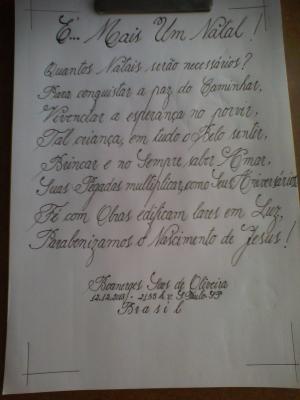 É... Mais Um Natal!
Quantos Natais serão necessários?
Para conquistar a paz do Caminhar,
Vivenciar a esperança no porvir,
Tal criança, em tudo o Belo sentir,
Brincar e no Sempre saber Amar,
Suas Pegadas multiplicar, como Seus Aniversários
Fé com Obras edificam lares em Luz,
Parabenizamos o Nascimento de Jesus!
Boanerges Saes de Oliveira
12.12.2013 - 21:55 h S.Paulo-SP
Brasil